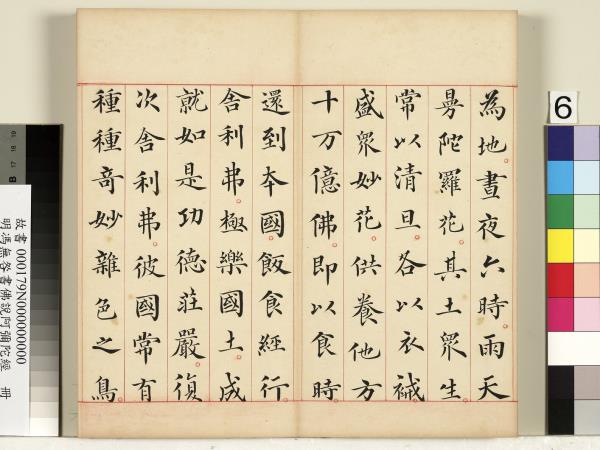 為地晝夜六時雨天
曼陀羅花其土眾生
常以清旦各以衣祴
盛眾妙花供養他方
十万億佛即以食時
還到本國飯食經行
舍利弗極樂國土成
就如是功德莊嚴復
次舍利弗彼國常有
種種奇妙雜色之鳥
6
故書 000179N000000000
明馮無咎書佛說阿彌陀經 冊